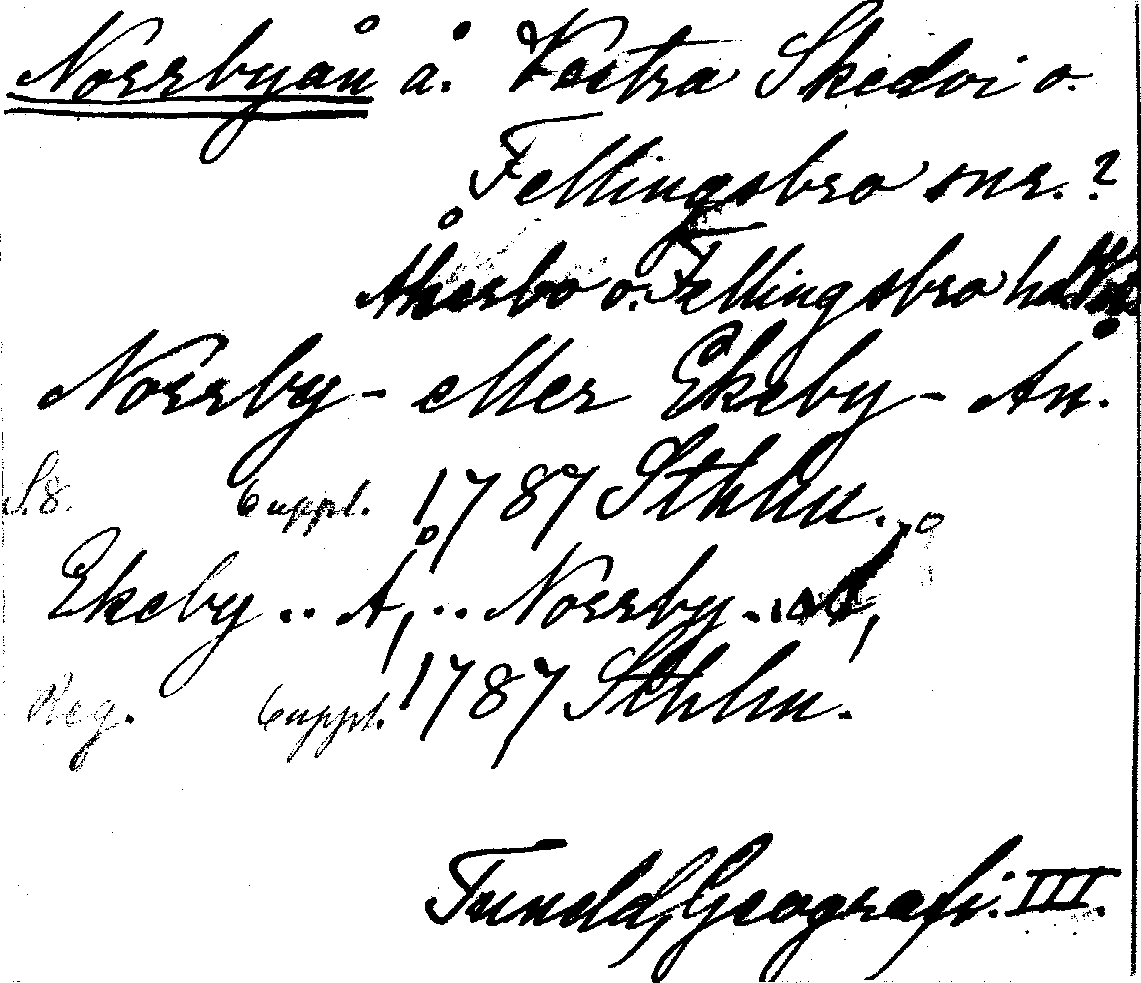 Norrbyån å. Vestra Skedvi o.
Fellingsbro snr. ?
Åkerbo o. Fellingsbro hdr
Norrby - eller Ekeby - Ån.
S. 8. Cuppl. 1787 Sthlm.
Ekeby .. Å, .. Norrby .. Å,
Reg. Cuppl. 1787 Sthlm.
Tunelds Geografi. III.